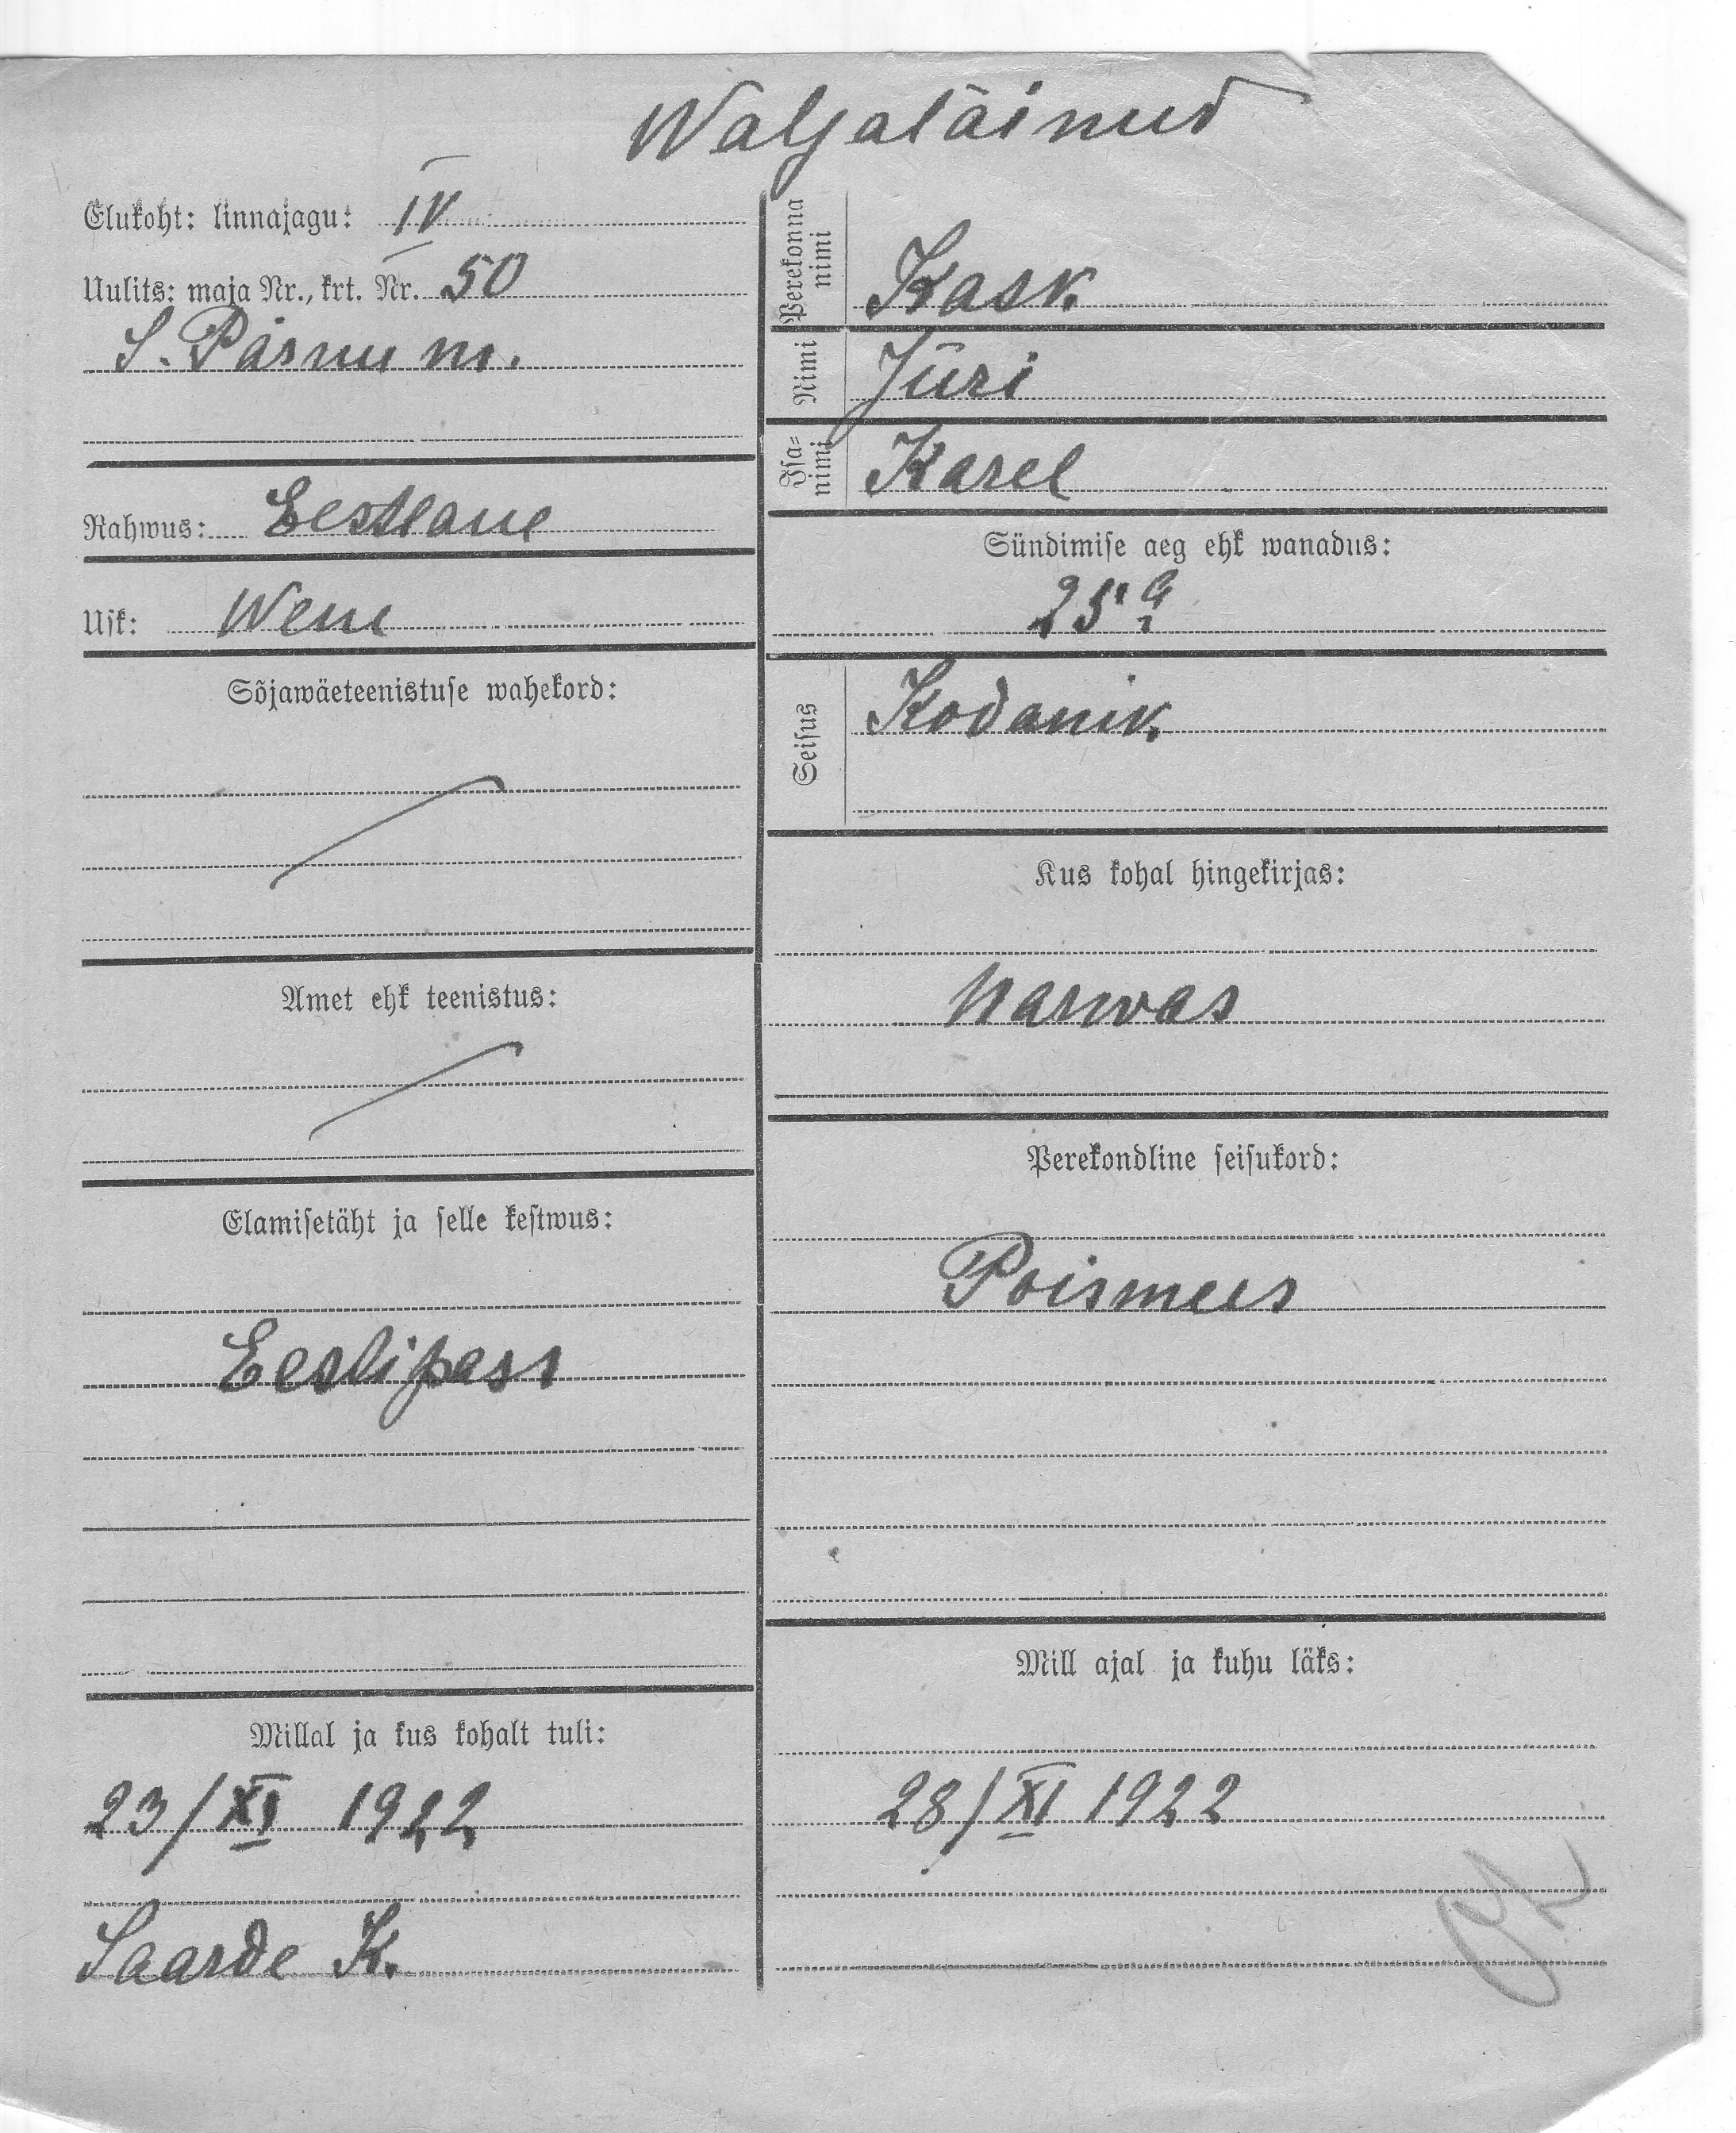 Waljaläinud
Elukoht: linnajagu: IV
Uulits: maja Nr., krt. Nr. 50
S. Pärnu m.
Rahwus: Eestlane
Usk: Wene
Sõjawäeteenistuse wahekord:
Amet ehk teenistus:
Elamisetäht ja selle kestwus:
Eestipass
Millal ja kus kohalt tuli:
23/XI 1922
Saarde K.
Perekonna
nimi
Kask
Nimi
Jüri
Isa-
nimi
Karel
Sündimise aeg ehk wanadus:
25 a
Seisus
Kodanik
Kus kohal hingekirjas:
Narwas
Perekondline seisukord:
Poismees
Mill ajal ja kuhu läks:
28/XI 1922